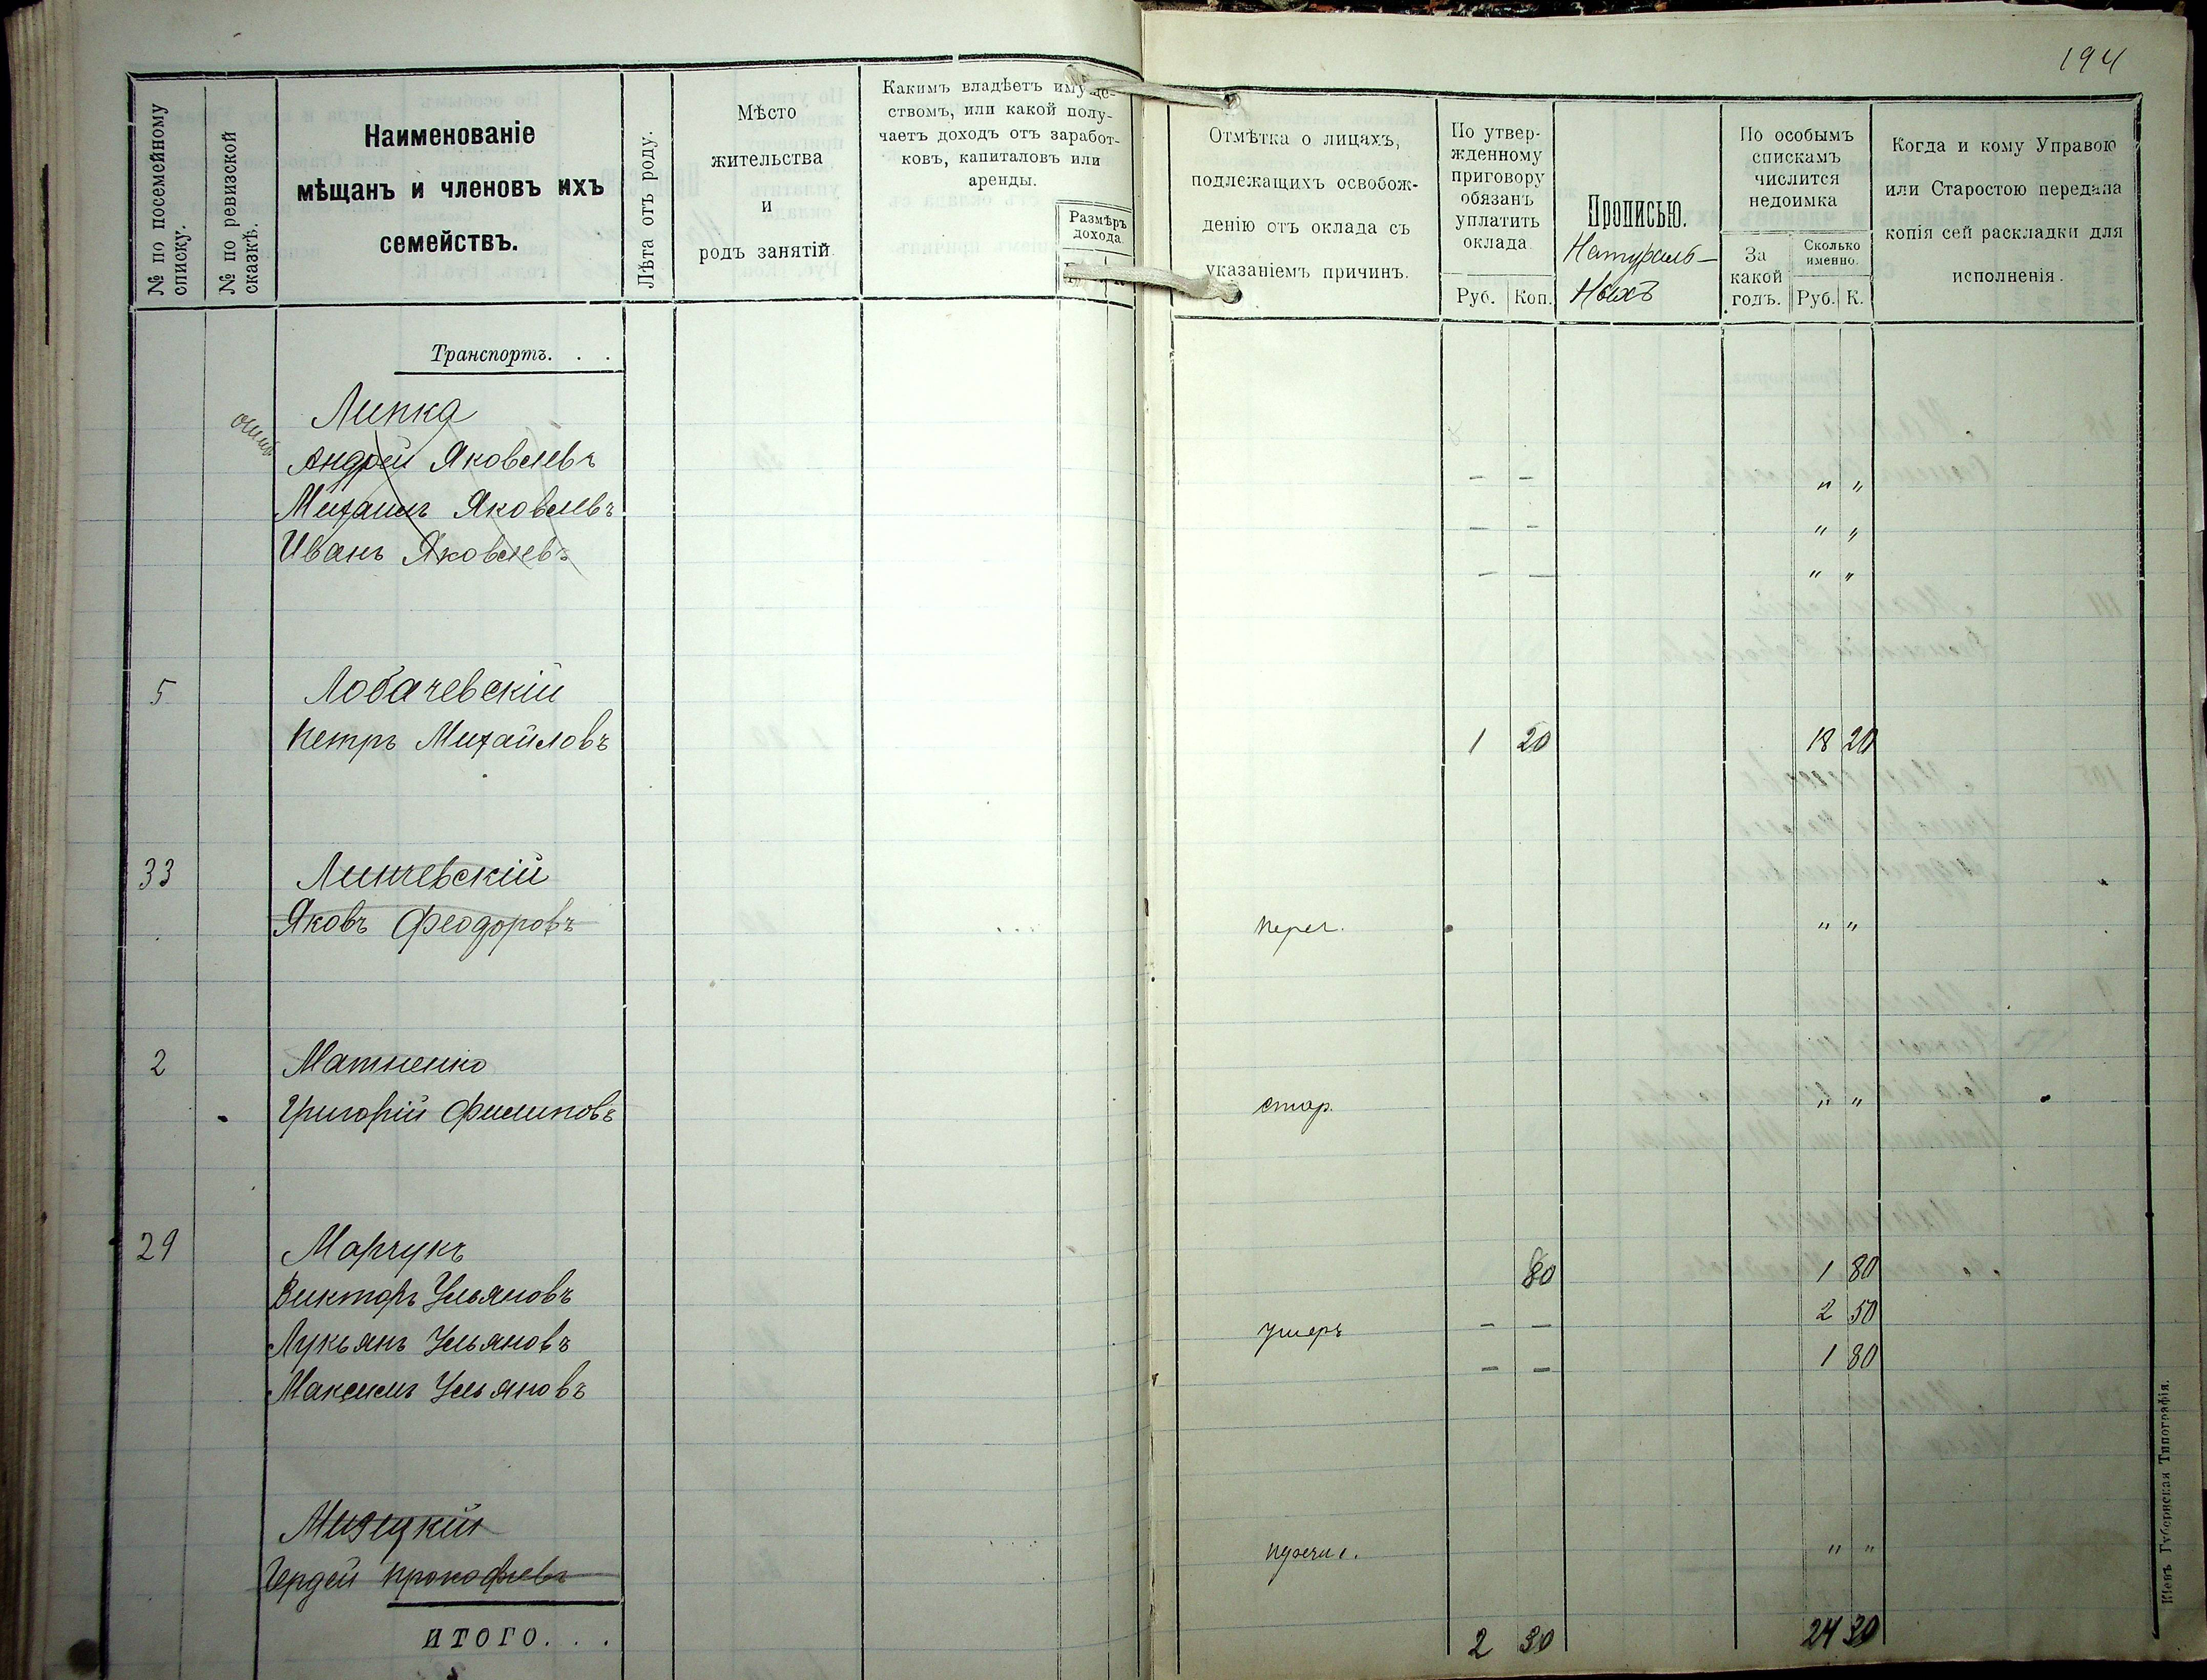 194
№ по посемейному списку.
№ по ревизской сказкѣ.
Наименованіе
мѣщанъ и членовъ ихъ
семействъ.
Лѣта отъ роду.
Мѣсто
жительства
и
родъ занятій
Какимъ владѣетъ имуще-
ствомъ, или какой полу-
чаетъ доходъ отъ заработ-
ковъ, капиталовъ или
аренды.
Размѣръ
дохода.
Отмѣтка о лицахъ,
подлежащихъ освобож-
денію отъ оклада съ
указаніемъ причинъ.
По утвер-
жденному
приговору
обязанъ
уплатить
оклада
Руб. Коп.
Прописью.
Натураль-
ныхъ
По особымъ
спискамъ
числится
недоимка
За
какой
годъ.
Сколько
именно.
Руб. К.
Когда и кому Управою
или Старостою передана
копія сей раскладки для
исполненія.
Транспортъ. . .
Липка
Андрей Яковлевъ – – " "
Михаилъ Яковлевъ – – " "
Иванъ Яковлевъ – – " "
5 Лобачевскій
Петръ Михайловъ 1 20 18 20
33 Линчевскій
Яковъ Феодоровъ переч. " "
2 Матненко
Григорій Филиповъ стар. " "
29 Марчукъ
Викторъ Ульяновъ 80 1 80
Лукьянъ Ульяновъ умеръ – – 2 50
Максимъ Ульяновъ – – 1 80
Мизецкій
Гордей Прокофьевъ " "
ИТОГО. . . 2 30 24 30
Кіевъ Губернская Типографія.